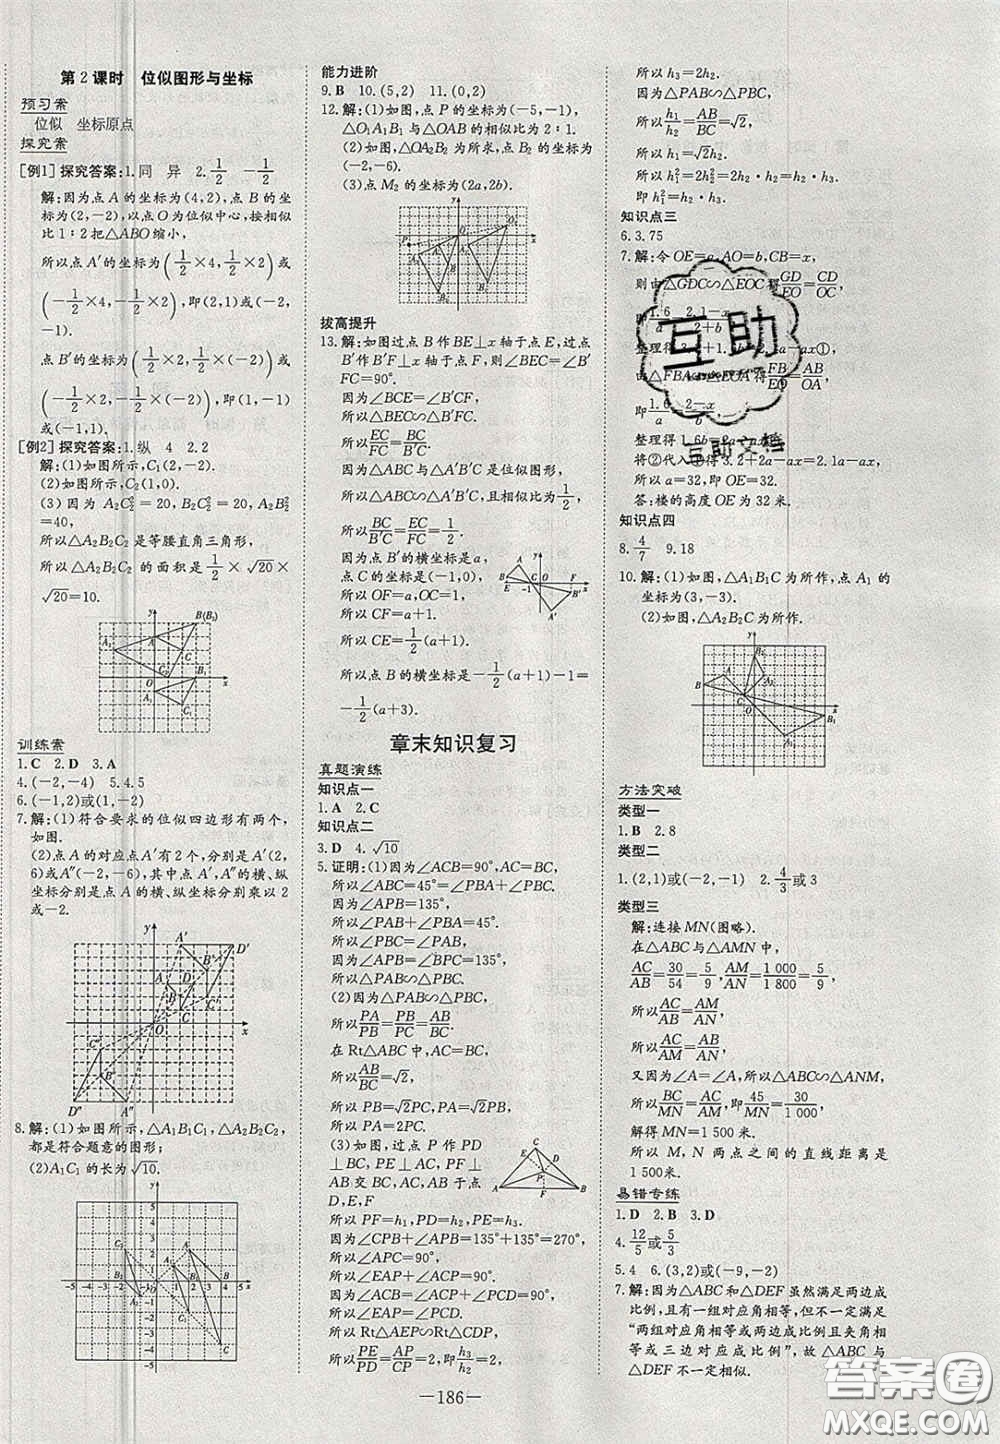 第2课时 位似图形与坐标
预习案
位似 坐标原点
探究案
[例1]探究答案:1.同 异 2.1/2 -1/2
解:因为点A的坐标为(4,2),点B的坐
标为(2,-2),点O为位似中心,按相似
比1:2把△ABO缩小,
所以点A′的坐标为(1/2×4,1/2×2)或
(-1/2×4,-1/2×2),即(2,1)或(-2,
-1).
点B′的坐标为(1/2×2,1/2×(-2))或
(-1/2×2,-1/2×(-2)),即(1,-1)或
(-1,1).
[例2]探究答案:1.纵 4 2.2
解:(1)如图所示,C₁(2,-2).
(2)如图所示,C₂(1,0).
(3)因为A₂C₂²=20,B₂C₂²=20,A₂B₂²
=40,
所以△A₂B₂C₂是等腰直角三角形,
所以△A₂B₂C₂的面积是1/2×√20×
√20=10.
训练案
1.C 2.D 3.A
4.(-2,-4) 5.4.5
6.(-1,2)或(1,-2)
7.解:(1)符合要求的位似四边形有两个,
如图.
(2)点A的对应点A′有2个,分别是A′(2,
6)或A″(-2,-6),其中点A′,A″的横、纵
坐标分别是点A的横、纵坐标分别乘以2
或-2.
8.解:(1)如图所示,△A₁B₁C₁,△A₂B₂C₂,
都是符合题意的图形;
(2)A₁C₁的长为√10.
能力进阶
9.B 10.(5,2) 11.(0,2)
12.解:(1)如图,点P的坐标为(-5,-1),
△O₁A₁B₁与△OAB的相似比为2:1.
(2)如图,△OA₂B₂为所求,点B₂的坐标为
(-2,-6).
(3)点M₂的坐标为(2a,2b).
拔高提升
13.解:如图过点B作BE⊥x轴于点E,过点
B′作B′F⊥x轴于点F,则∠BEC=∠B′
FC=90°.
因为∠BCE=∠B′CF,
所以△BEC∽△B′FC.
所以EC/FC=BC/B′C.
因为△ABC与△A′B′C是位似图形,位似比为1/2,
所以BC/B′C=EC/FC=1/2.
因为点B′的横坐标是a,
点C的坐标是(-1,0),
所以OF=a,OC=1.
所以CF=a+1.
所以CE=1/2(a+1).
所以点B的横坐标是-1/2(a+1)-1=
-1/2(a+3).
章末知识复习
真题演练
知识点一
1.A 2.C
知识点二
3.D 4.√10
5.证明:(1)因为∠ACB=90°,AC=BC,
所以∠ABC=45°=∠PBA+∠PBC.
因为∠APB=135°,
所以∠PAB+∠PBA=45°.
所以∠PBC=∠PAB,
所以△PAB∽△PBC.
(2)因为△PAB∽△PBC,
所以PA/PB=PB/PC=AB/BC.
在Rt△ABC中,AC=BC,
所以AB/BC=√2,
所以PB=√2PC,PA=√2PB,
所以PA=2PC.
(3)如图,过点P作PD
⊥BC,PE⊥AC,PF⊥
AB交BC,AC,AB于点
D,E,F
所以PF=h₁,PD=h₂,PE=h₃,
因为∠CPB+∠APB=135°+135°=270°,
所以∠APC=90°,
所以∠EAP+∠ACP=90°.
因为∠ACP+∠PCD=90°,
所以∠EAP=∠PCD,
所以Rt△AEP∽Rt△CDP,
所以PE/PD=AP/PC=2,即h₃/h₂=2,
所以h₃=2h₂.
因为△PAB∽△PBC,
所以h₁/h₂=AB/BC=√2,
所以h₁=√2h₂.
所以h₁²=2h₂²=2h₂·h₂=h₂h₃.
即h₁²=h₂·h₃.
知识点三
6.3.75
7.解:令OE=a,AO=b,CB=x,
则由△GDC∽△EOC得GD/EO=CD/OC,
整理得3.2+1.6b=2.1a-ax①,
由△FBA∽△EOA得FB/EO=AB/OA,
整理得1.6b=2a-ax②,
将②代入①得3.2+2a-ax=2.1a-ax,
所以a=32,即OE=32.
答:楼的高度OE为32米.
知识点四
8.4/7 9.18
10.解:(1)如图,△A₁B₁C为所作,点A₁的
坐标为(3,-3).
(2)如图,△A₂B₂C为所作.
方法突破
类型一
1.B 2.8
类型二
1.(2,1)或(-2,-1) 2.4/3或3
类型三
解:连接MN(图略).
在△ABC与△AMN中,
AC/AB=30/54=5/9,AM/AN=1 000/1 800=5/9,
所以AC/AB=AM/AN,
所以AC/AM=AB/AN.
又因为∠A=∠A,所以△ABC∽△ANM,
所以BC/MN=AC/AM,即45/MN=30/1 000,
解得MN=1 500米.
所以M,N两点之间的直线距离是
1 500米.
易错专练
1.D 2.B 3.D
4.12/5或5/3
5.4 6.(3,2)或(-9,-2)
7.解:因为△ABC和△DEF虽然满足两边成
比例,且有一组对应角相等,但不一定满足
“两组对应角相等或两边成比例且夹角相
等或三边对应成比例”,故△ABC与
△DEF不一定相似.
—186—
互助
互助文档
答案圈
MXQE.COM